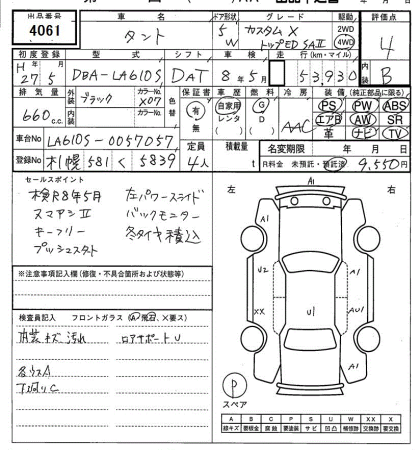 出品番号
4061
車名
タント
ドア形状
5
W
グレード
カスタムX
トップED SAⅡ
駆動
2WD
4WD
評価点
4
B
初度登録
H 27年 5月
型式
DBA-LA610S
シフト
DAT
車検
8年 5月
走行(km・マイル)
53930
排気量
660 c.c.
外装
ブラック
カラーNo.
X07
内装
カラーNo.
色替
保証書
有
無
車歴
自家用
レンタ
燃料
G
D
冷房
AAC
装備 (純正部品に限る)
PS PW ABS
エアB AW SR
革 ナビ TV
車台No
LA610S-0057057
登録No
札幌581く5839
定員
4人
積載量
t
名変期限 年 月 日
R料金 未預託・預託済 9,550円
セールスポイント
検R8年5月 左パワースライド
スマアシⅡ バックモニター
キーフリー 冬タイヤ積込
プッシュスタート
※注意事項記入欄(修復・不具合箇所および状態等)
検査員記入 フロントガラス(A・飛石、×要ス)
内装キズ汚れ ロアサポートU
各ウスA
下廻りC
左
右
A1
A1
U2
XX
U1
A1
AU1
A1
P
スペア
A B C P S U W XX X
線キズ 要板金 腐蝕 要塗装 サビ 凹凸 補修跡 交換跡 要交換